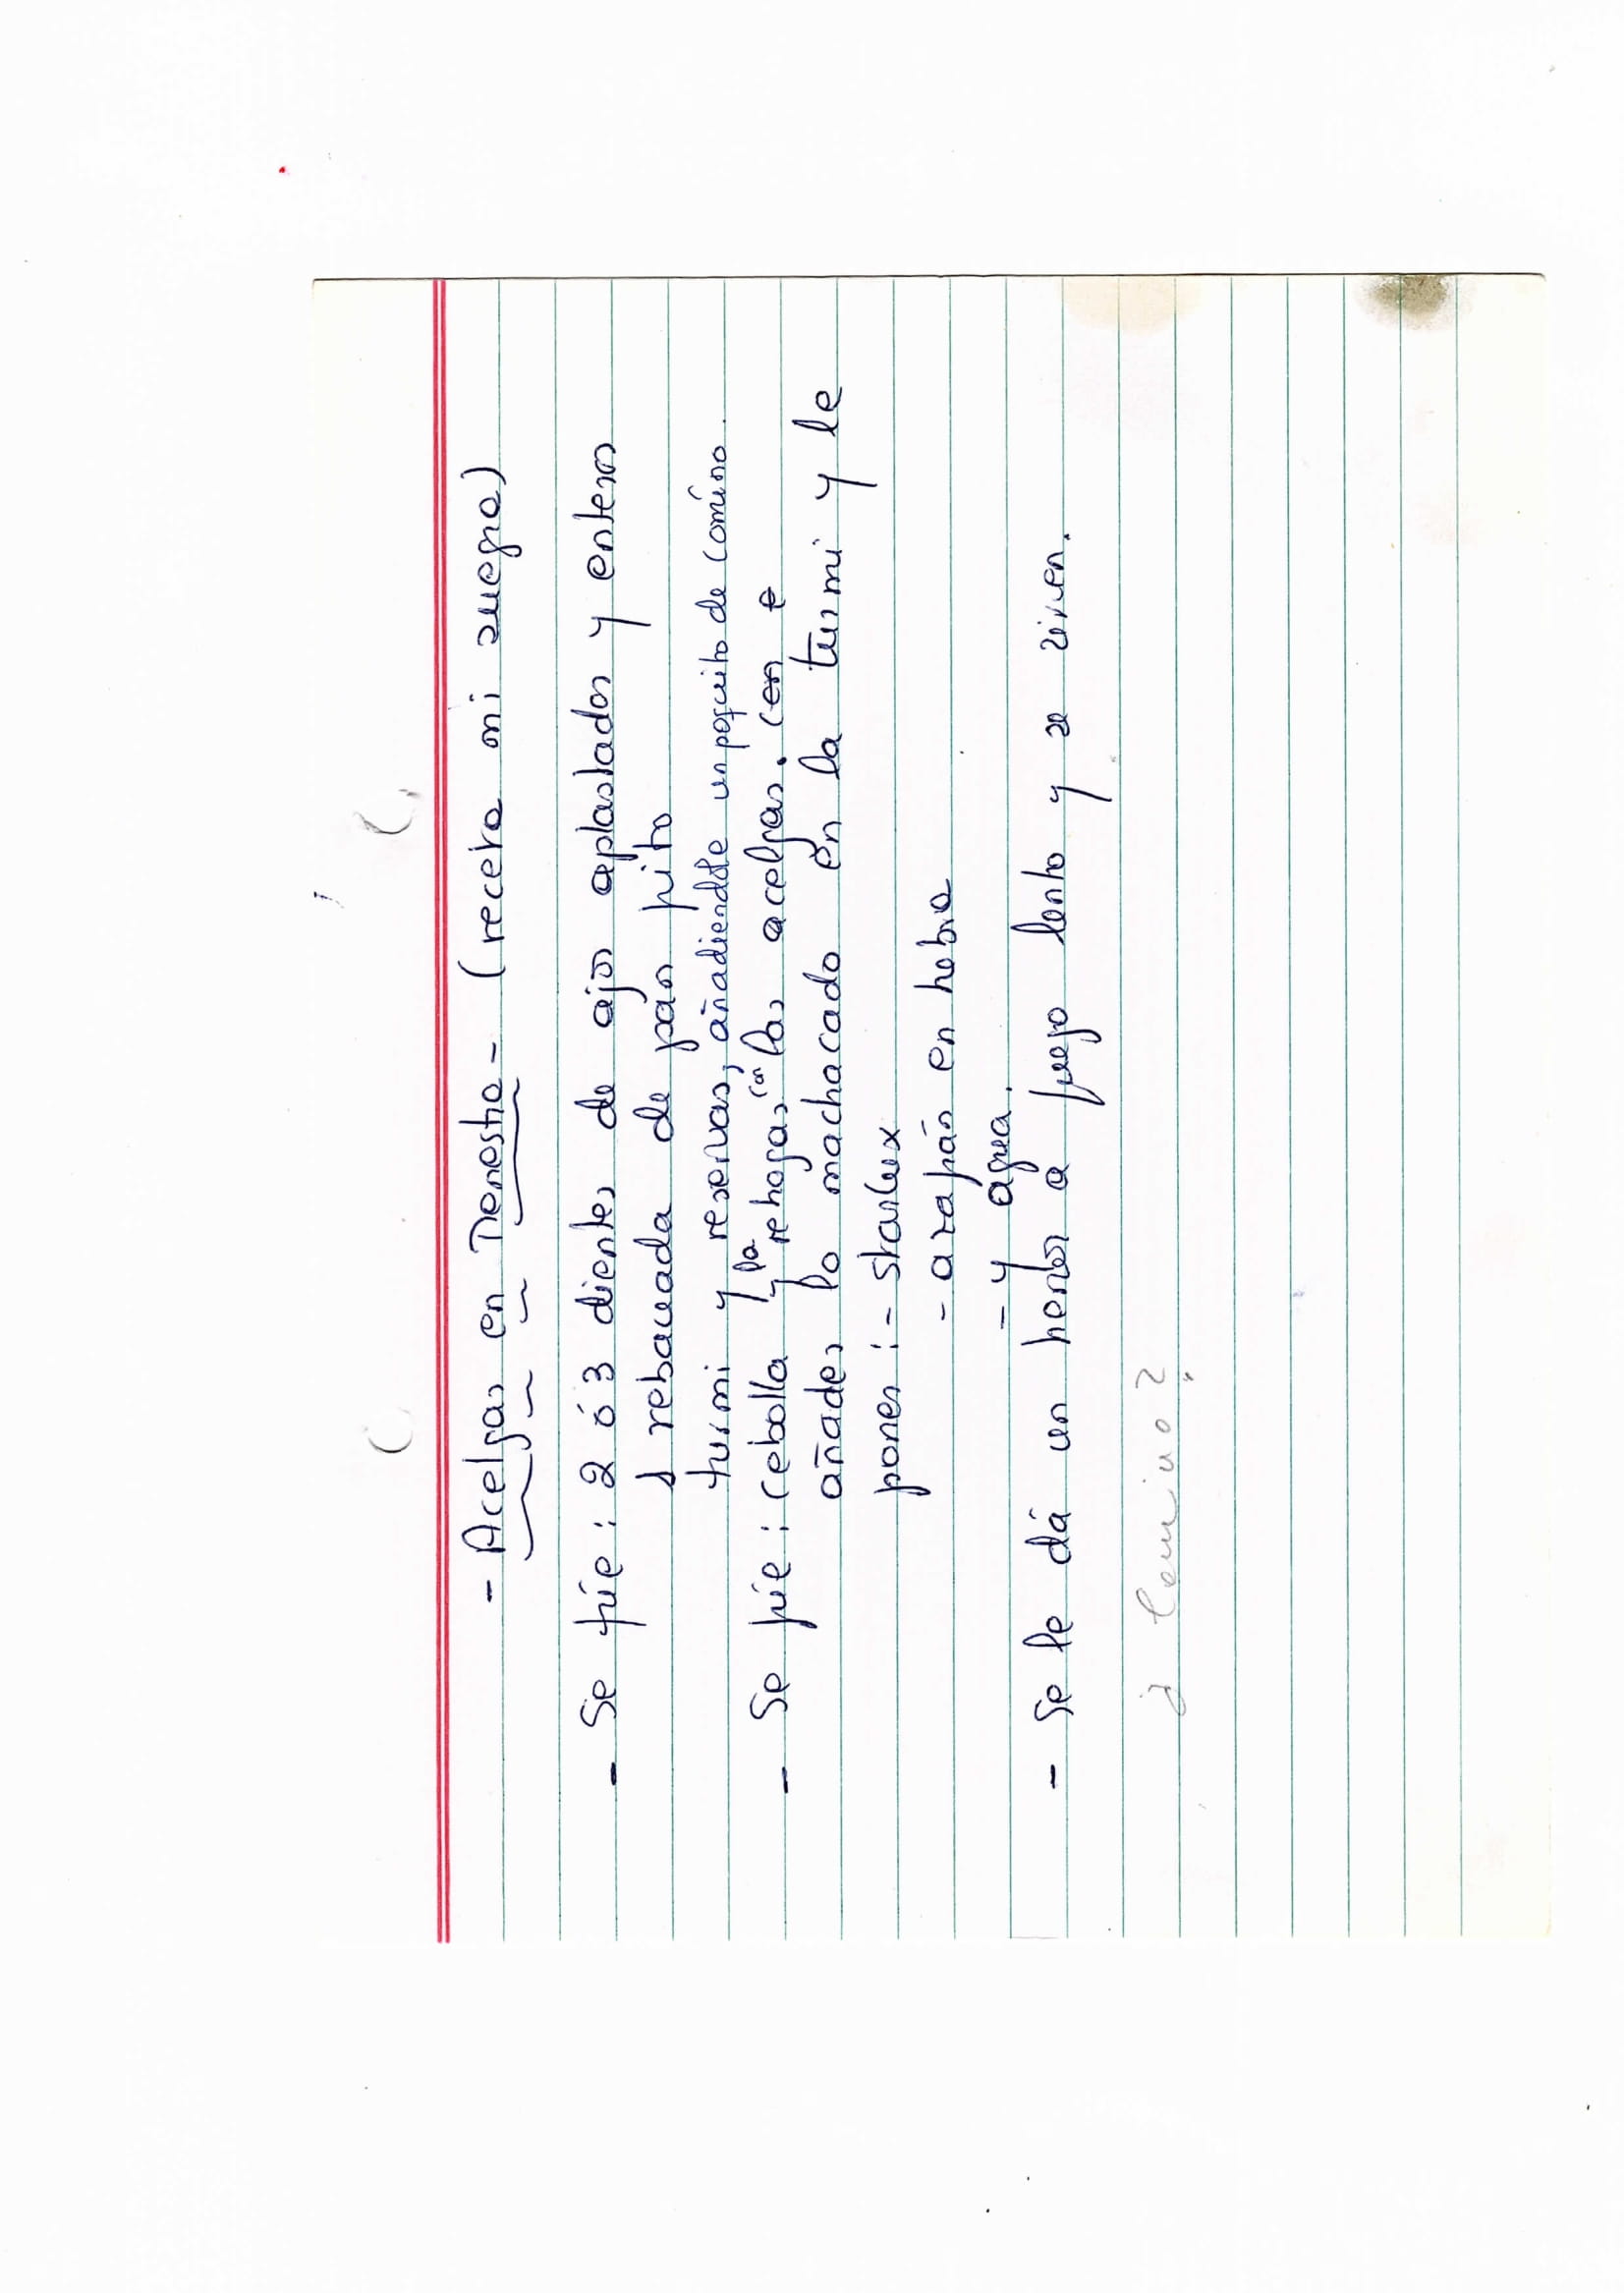 - Acelgas en Menestra - (receta mi suegra)
- Se fríe : 2 ó 3 dientes de ajos aplastados y enteros
1 rebanada de pan frito
turmi y reservas, añadiendole un poquito de comino.
- Se fríe : cebolla y la rehogas con las acelgas. con e
añades lo machacado en la turmi y le
pones : - starlux
- azafrán en hebra
- y agua.
- Se le dá un hervor a fuego lento y se sirven.
¿ Comino ?